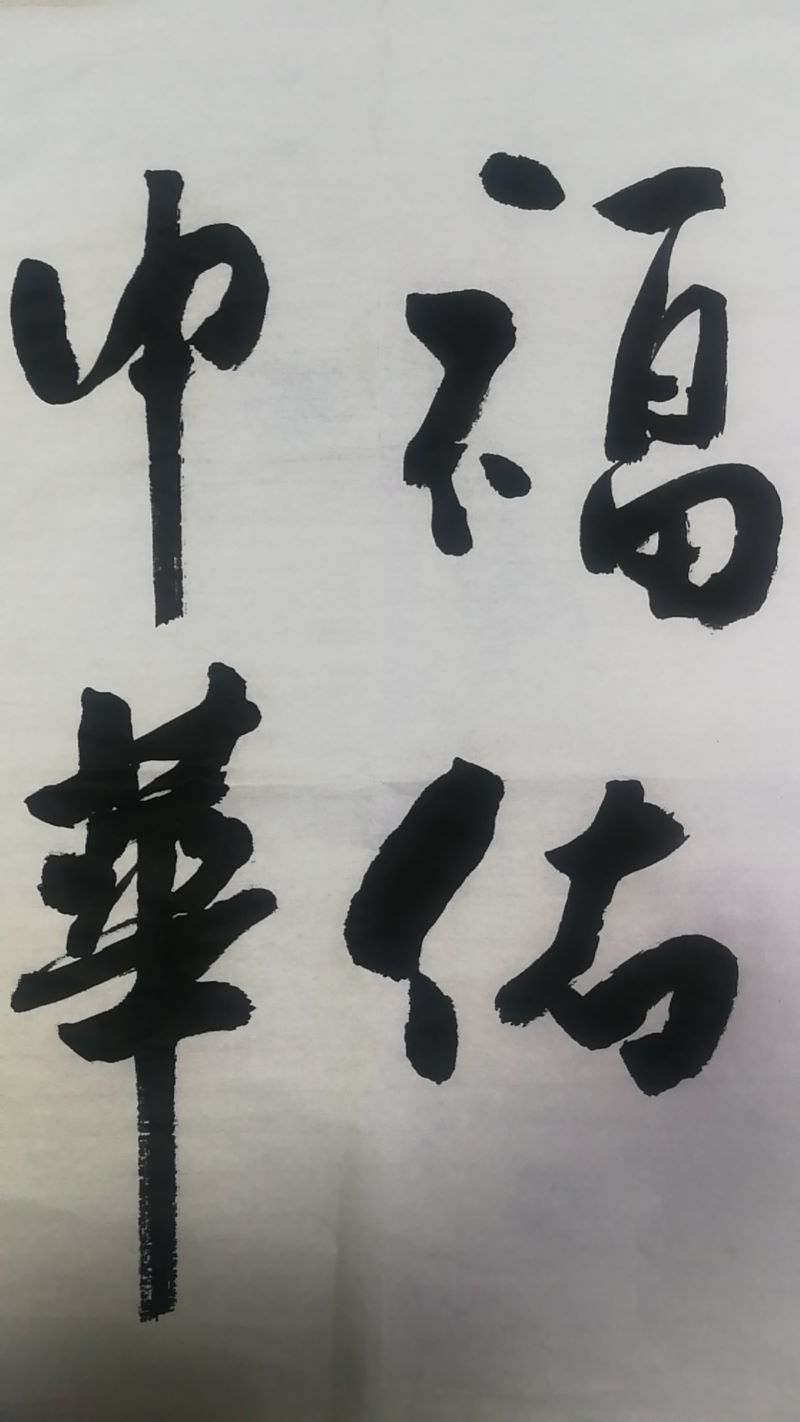 福佑
中華